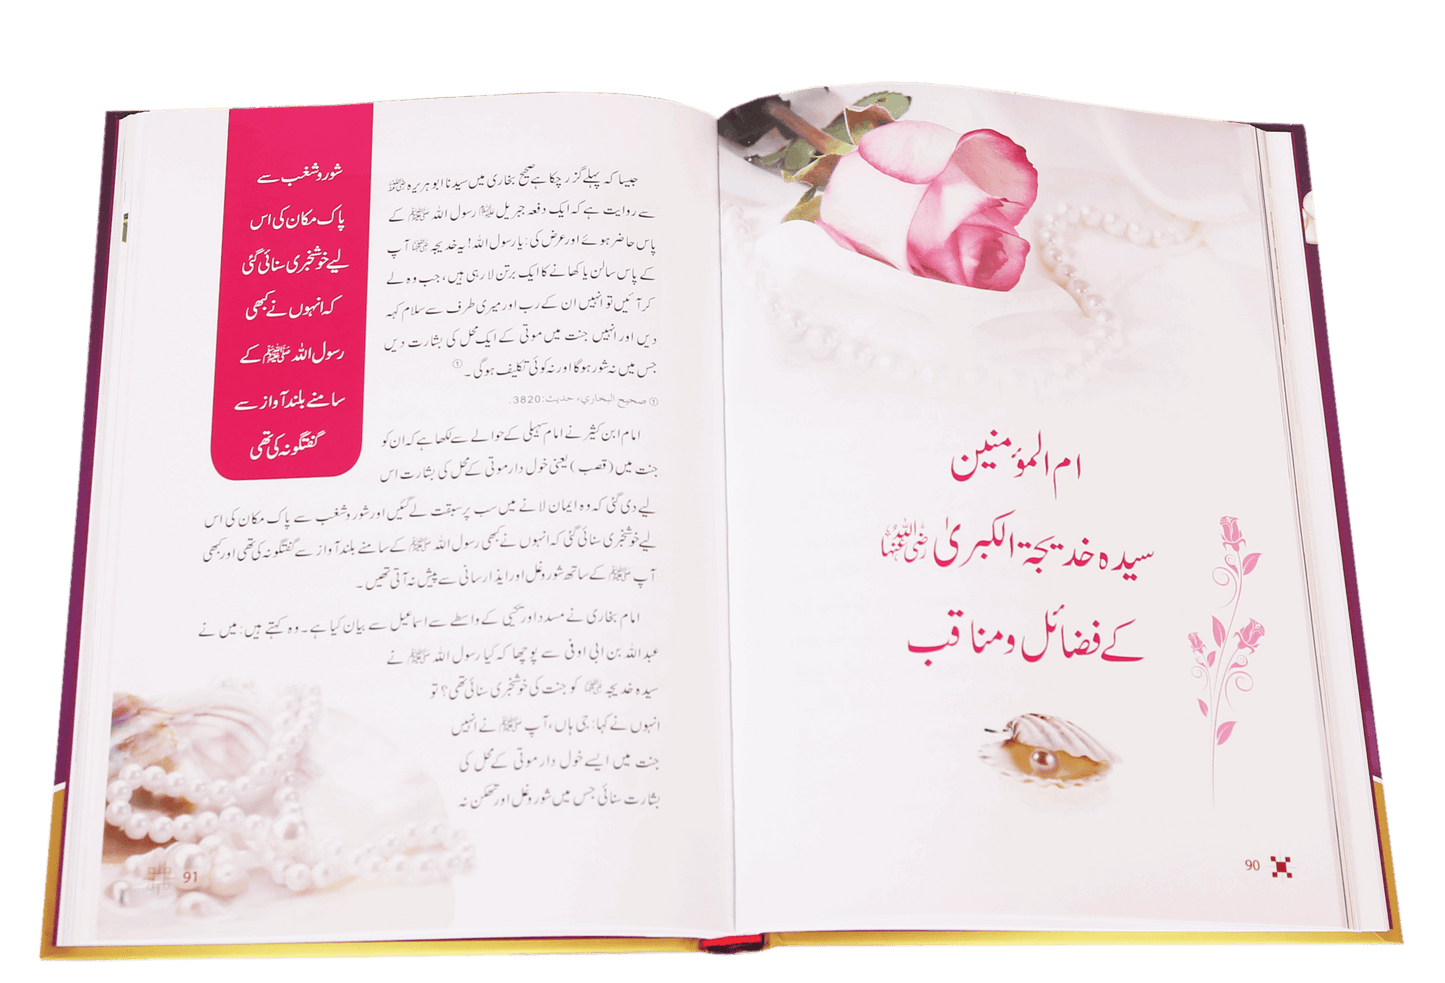 ام المؤمنین
سیدہ خدیجۃ الکبریٰ رضی اللہ عنہا
کے فضائل و مناقب
90
شور و شغب سے
پاک مکان کی اس
لیے خوشخبری سنائی گئی
کہ انہوں نے کبھی
رسول اللہ ﷺ کے
سامنے بلند آواز سے
گفتگو نہ کی تھی
جیسا کہ پہلے گزر چکا ہے صحیح بخاری میں سیدنا ابو ہریرہ رضی اللہ عنہ
سے روایت ہے کہ ایک دفعہ جبریل علیہ السلام رسول اللہ ﷺ کے
پاس حاضر ہوئے اور عرض کی: یا رسول اللہ! یہ خدیجہ رضی اللہ عنہا آپ
کے پاس سالن یا کھانے کا ایک برتن لا رہی ہیں، جب وہ لے
کر آئیں تو انہیں ان کے رب اور میری طرف سے سلام کہہ
دیں اور انہیں جنت میں موتی کے ایک محل کی بشارت دیں
جس میں نہ شور ہوگا اور نہ کوئی تکلیف ہوگی۔ ①
① صحيح البخاري، حديث:3820.
امام ابن کثیر نے امام سہیلی کے حوالے سے لکھا ہے کہ ان کو
جنت میں (قصب) یعنی خول دار موتی کے محل کی بشارت اس
لیے دی گئی کہ وہ ایمان لانے میں سب پر سبقت لے گئیں اور شور و شغب سے پاک مکان کی اس
لیے خوشخبری سنائی گئی کہ انہوں نے کبھی رسول اللہ ﷺ کے سامنے بلند آواز سے گفتگو نہ کی تھی اور کبھی
آپ ﷺ کے ساتھ شور و غل اور ایذا رسانی سے پیش نہ آتی تھیں۔
امام بخاری نے مسدد اور یحییٰ کے واسطے سے اسماعیل سے بیان کیا ہے۔ وہ کہتے ہیں: میں نے
عبداللہ بن ابی اوفی سے پوچھا کہ کیا رسول اللہ ﷺ نے
سیدہ خدیجہ رضی اللہ عنہا کو جنت کی خوشخبری سنائی تھی؟ تو
انہوں نے کہا: جی ہاں، آپ ﷺ نے انہیں
جنت میں ایسے خول دار موتی کے محل کی
بشارت سنائی جس میں شور و غل اور تھکن نہ
91